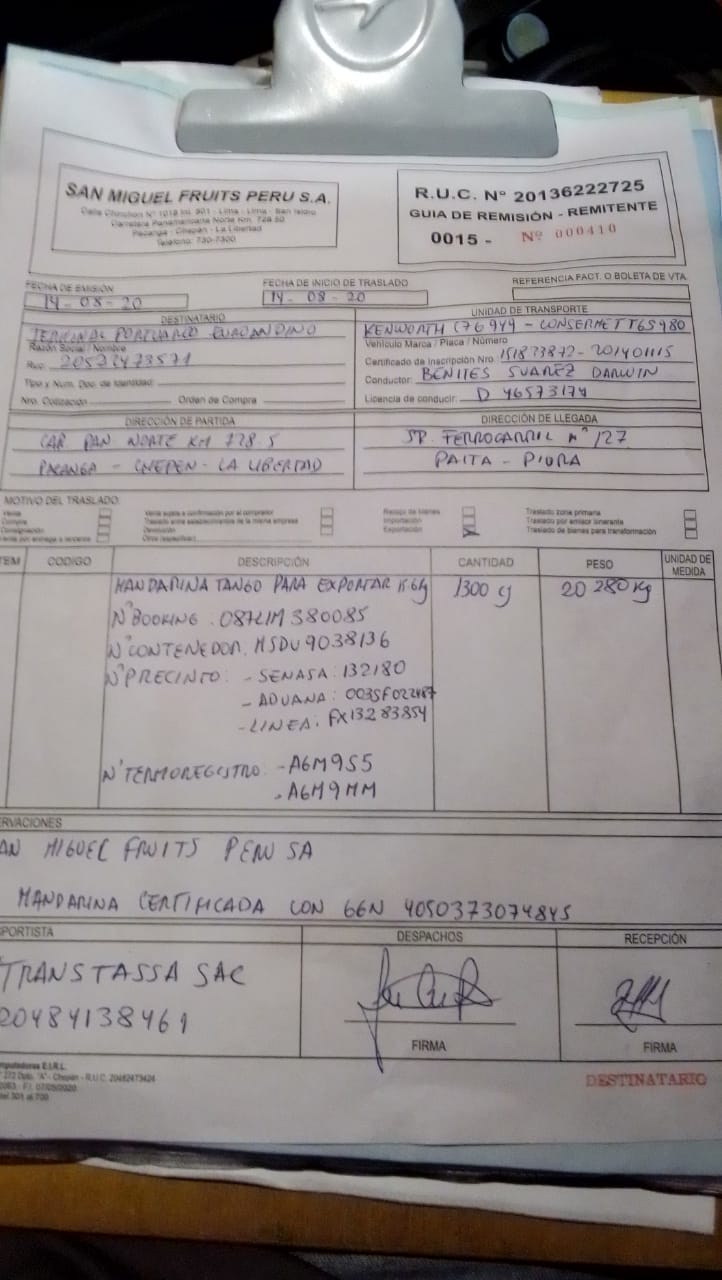 SAN MIGUEL FRUITS PERU S.A.
Calle Chinchon N° 1018 Int. 901 - Lima - Lima - San Isidro
Carretera Panamericana Norte Km. 728.50
Pacanga - Chepén - La Libertad
Teléfono: 730-7300
R.U.C. N° 20136222725
GUIA DE REMISIÓN - REMITENTE
0015 - Nº 000410
FECHA DE EMISIÓN
14-08-20
FECHA DE INICIO DE TRASLADO
14-08-20
REFERENCIA FACT. O BOLETA DE VTA.
DESTINATARIO
TERMINAL PORTUARIO EUROANDINO
Razón Social / Nombre
Ruc: 20522473571
Tipo y Num. Doc. de Identidad:
Nro. Cotización Orden de Compra
UNIDAD DE TRANSPORTE
KENWORTH C76944 - CONSERMET T6S980
Vehículo Marca / Placa / Número
Certificado de Inscripción Nro 151833872-201401115
Conductor: BENITES SUAREZ DARWIN
Licencia de conducir: D 46573174
DIRECCIÓN DE PARTIDA
CAR PAN NORTE KM 728.5
PACANGA - CHEPEN - LA LIBERTAD
DIRECCIÓN DE LLEGADA
JR. FERROCARRIL Nº 127
PAITA - PIURA
MOTIVO DEL TRASLADO
Venta
Compra
Consignación
Venta sujeta a confirmación por el comprador
Traslado entre establecimientos de la misma empresa
Devolución
Otros (especificar)
Recojo de bienes
Importación
Exportación X
Traslado zona primaria
Traslado por emisor itinerante
Traslado de bienes para transformación
TEM CODIGO DESCRIPCIÓN CANTIDAD PESO UNIDAD DE MEDIDA
MANDARINA TANGO PARA EXPORTAR 15.6kg 1300 cj 20 280 Kg
N° BOOKING: 087LIM380085
N° CONTENEDOR: MSDU9038136
N° PRECINTO: - SENASA: 132180
- ADUANA: 003SF022487
- LINEA: FX13283854
N° TERMOREGISTRO: - A6M9S5
- A6M9MM
ERVACIONES
AN MIGUEL FRUITS PERU SA
MANDARINA CERTIFICADA CON GGN 4050373074845
SPORTISTA
TRANSTASSA SAC
20484138461
DESPACHOS
FIRMA
RECEPCIÓN
FIRMA
DESTINATARIO